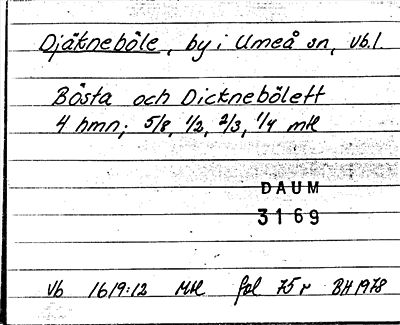 Djäkneböle, by i Umeå sn, Vb.l.
Bösta och Dicknebölett
4 hmn; 5/8, 1/2, 2/3, 1/4 mtl
DAUM
3169
Vb 1619:12 Mtl fol 75 r BH 1978